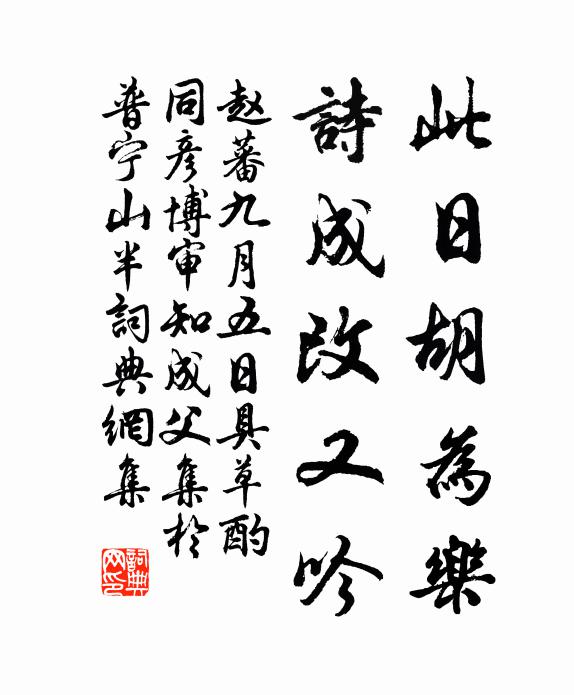 此日胡為樂
詩成改又吟
赵蕃九月五日具草酌
同彦博审知成父集於
普宁山半詞典網集
詞典
网印